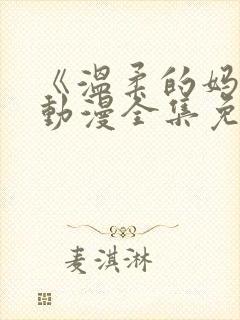 《温柔的妈
动漫全集免
麦淇淋